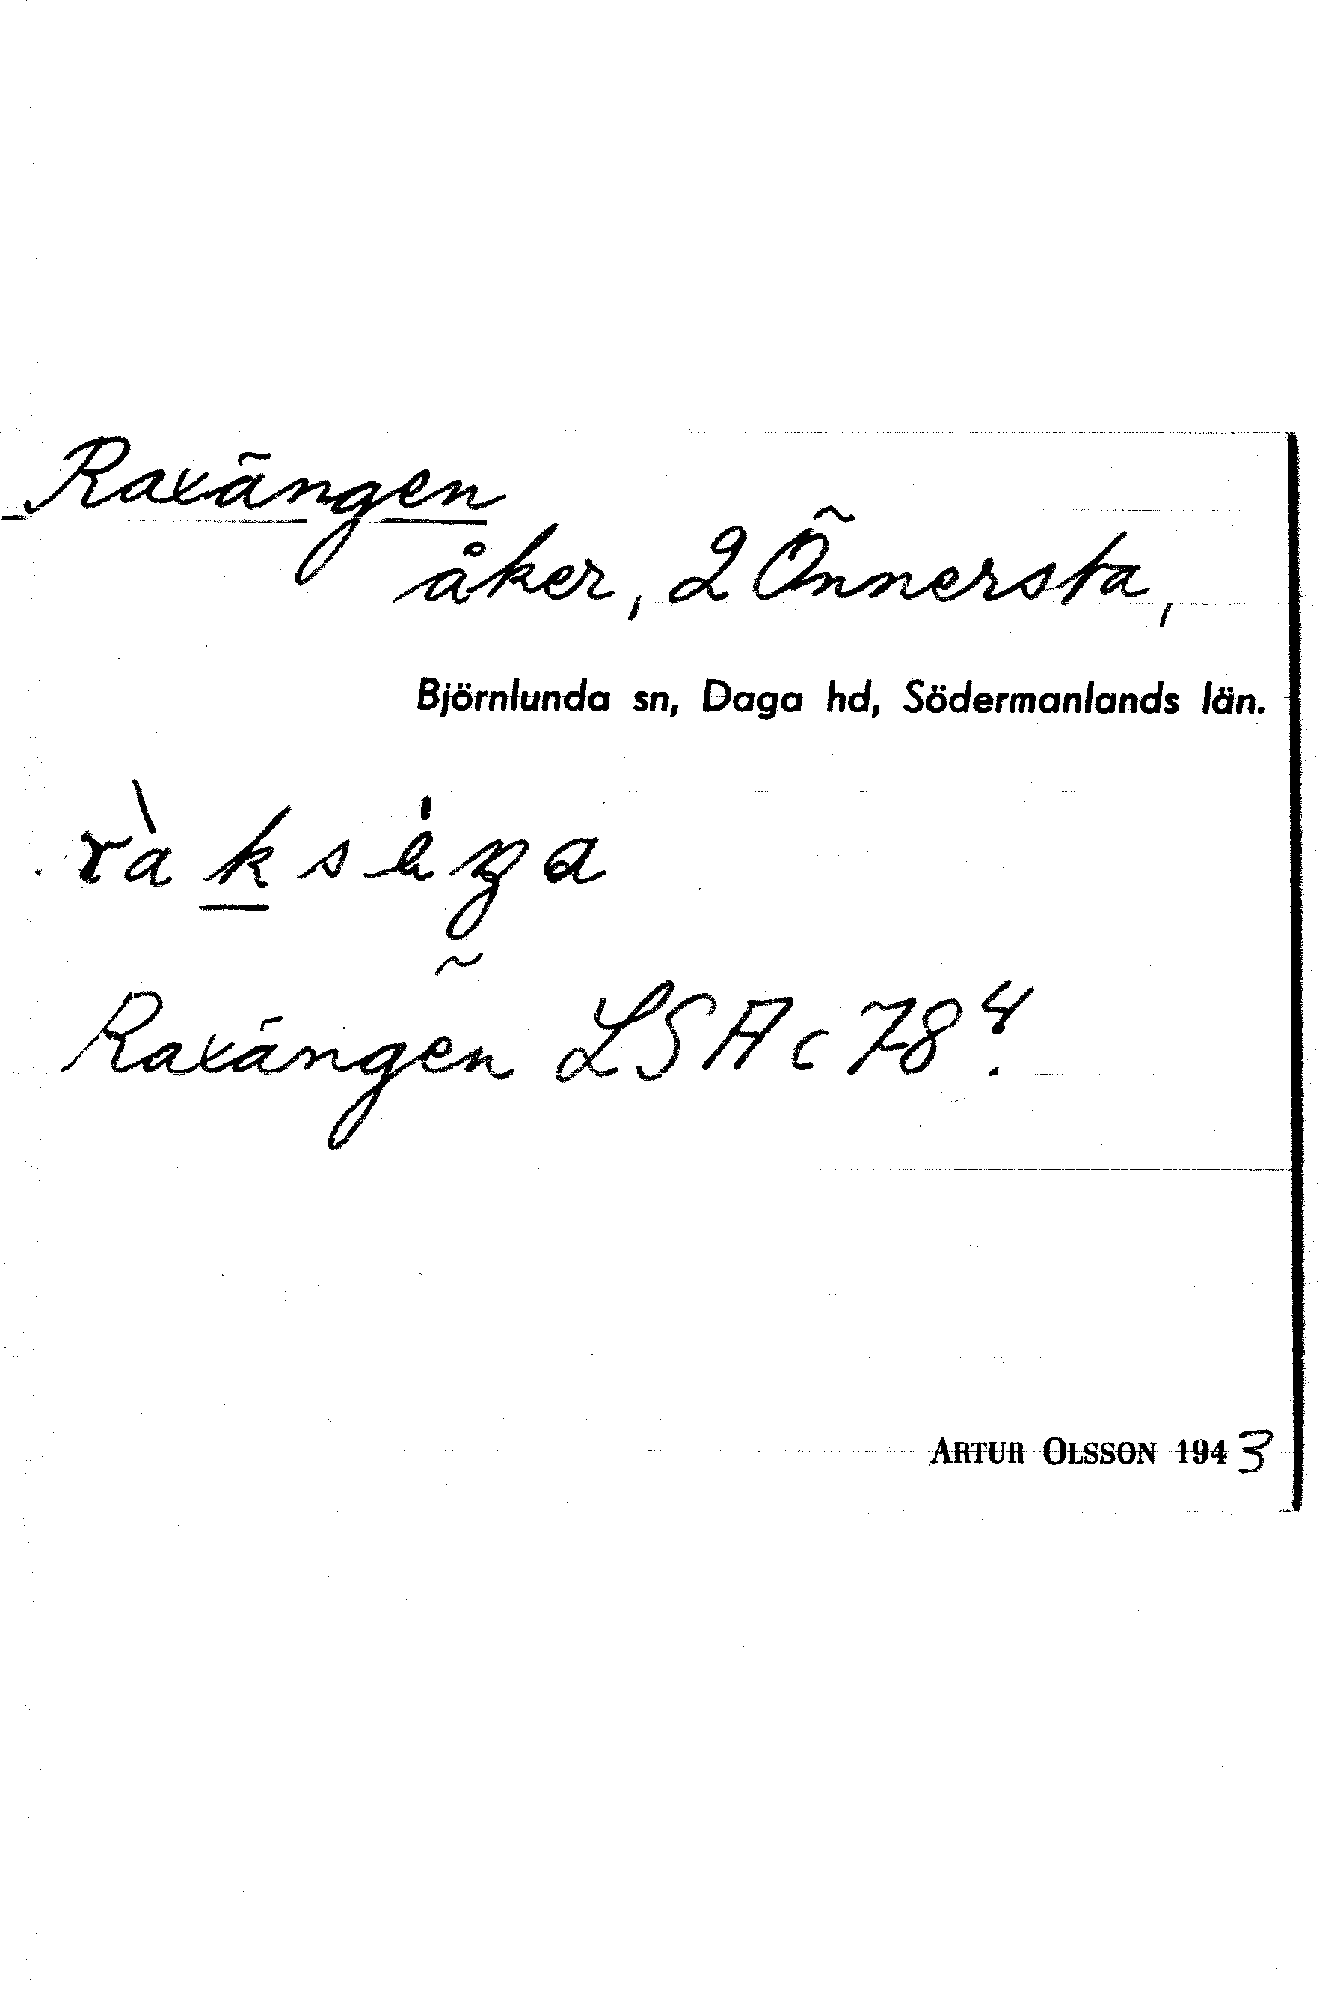 Raxängen
åker, 2 Önnersta,
Björnlunda sn, Daga hd, Södermanlands län.
Raxängen LSA c 78⁴.
ARTUR OLSSON 1943